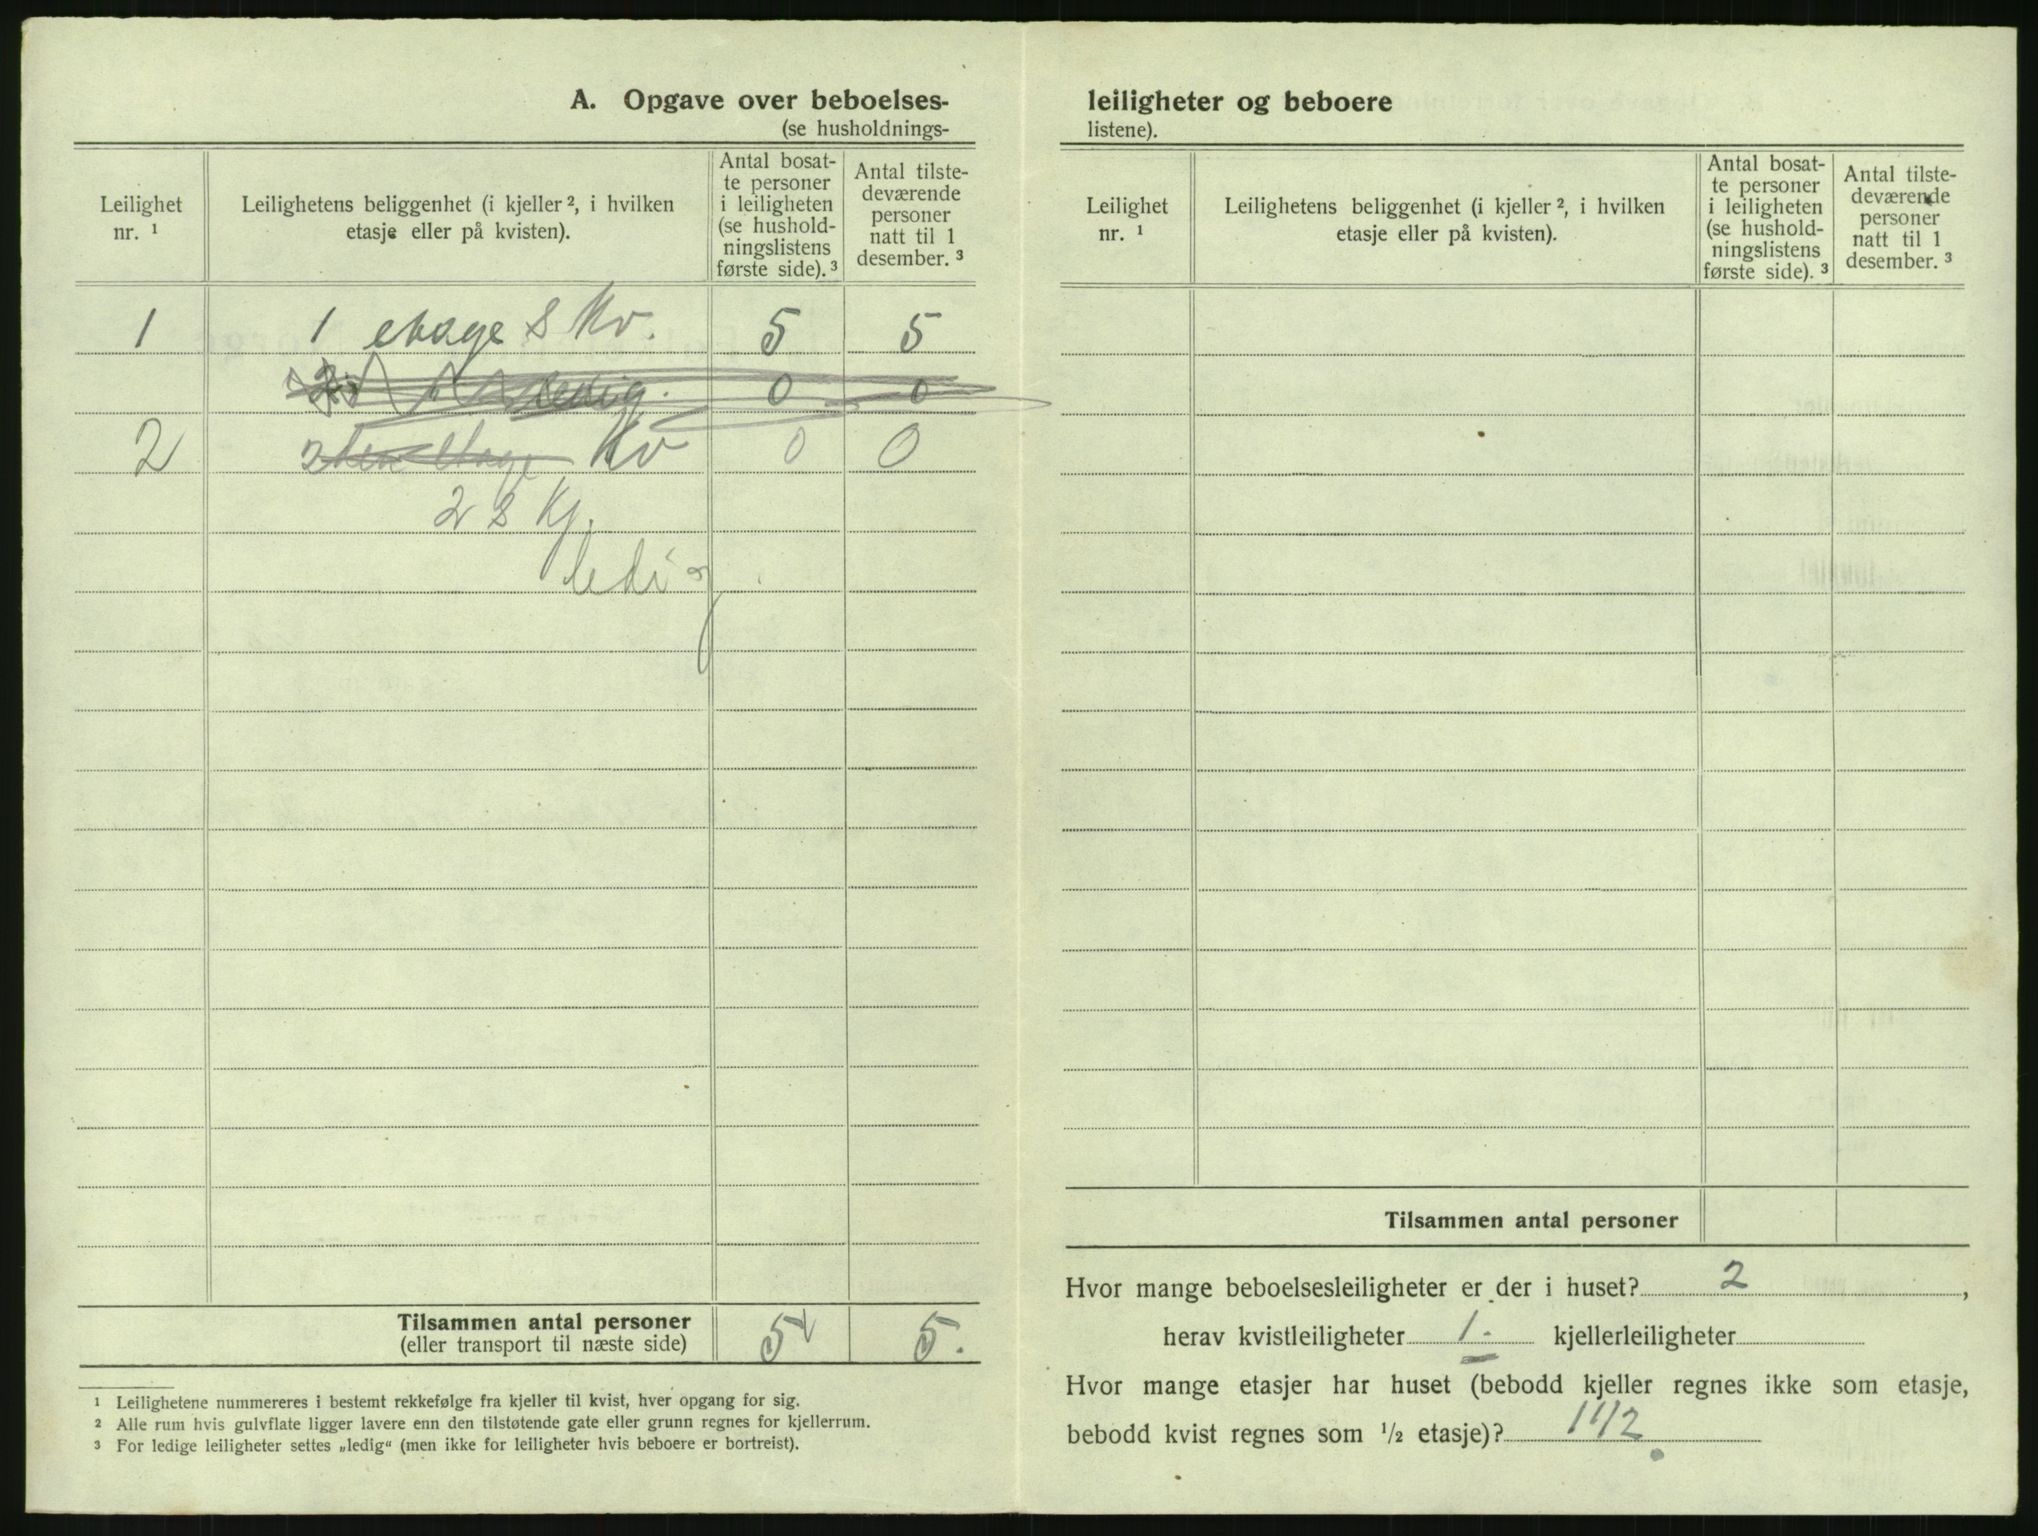 A. Opgave over beboelses-
(se husholdnings-
Leilighet
nr. 1
Leilighetens beliggenhet (i kjeller 2, i hvilken
etasje eller på kvisten).
Antal bosat-
te personer
i leiligheten
(se hushold-
ningslistens
første side). 3
Antal tilste-
deværende
personer
natt til 1
desember. 3
1 1 etage & Kv. 5 5
ledig. 0 0
2 2den etage Kv 0 0
2 & Kj.
ledig
Tilsammen antal personer 5 5.
(eller transport til næste side)
1 Leilighetene nummereres i bestemt rekkefølge fra kjeller til kvist, hver opgang for sig.
2 Alle rum hvis gulvflate ligger lavere enn den tilstøtende gate eller grunn regnes for kjellerrum.
3 For ledige leiligheter settes „ledig“ (men ikke for leiligheter hvis beboere er bortreist).
leiligheter og beboere
listene).
Leilighet
nr. 1
Leilighetens beliggenhet (i kjeller 2, i hvilken
etasje eller på kvisten).
Antal bosat-
te personer
i leiligheten
(se hushold-
ningslistens
første side). 3
Antal tilste-
deværende
personer
natt til 1
desember. 3
Tilsammen antal personer
Hvor mange beboelsesleiligheter er der i huset? 2,
herav kvistleiligheter 1. kjellerleiligheter
Hvor mange etasjer har huset (bebodd kjeller regnes ikke som etasje,
bebodd kvist regnes som 1/2 etasje)? 1 1/2